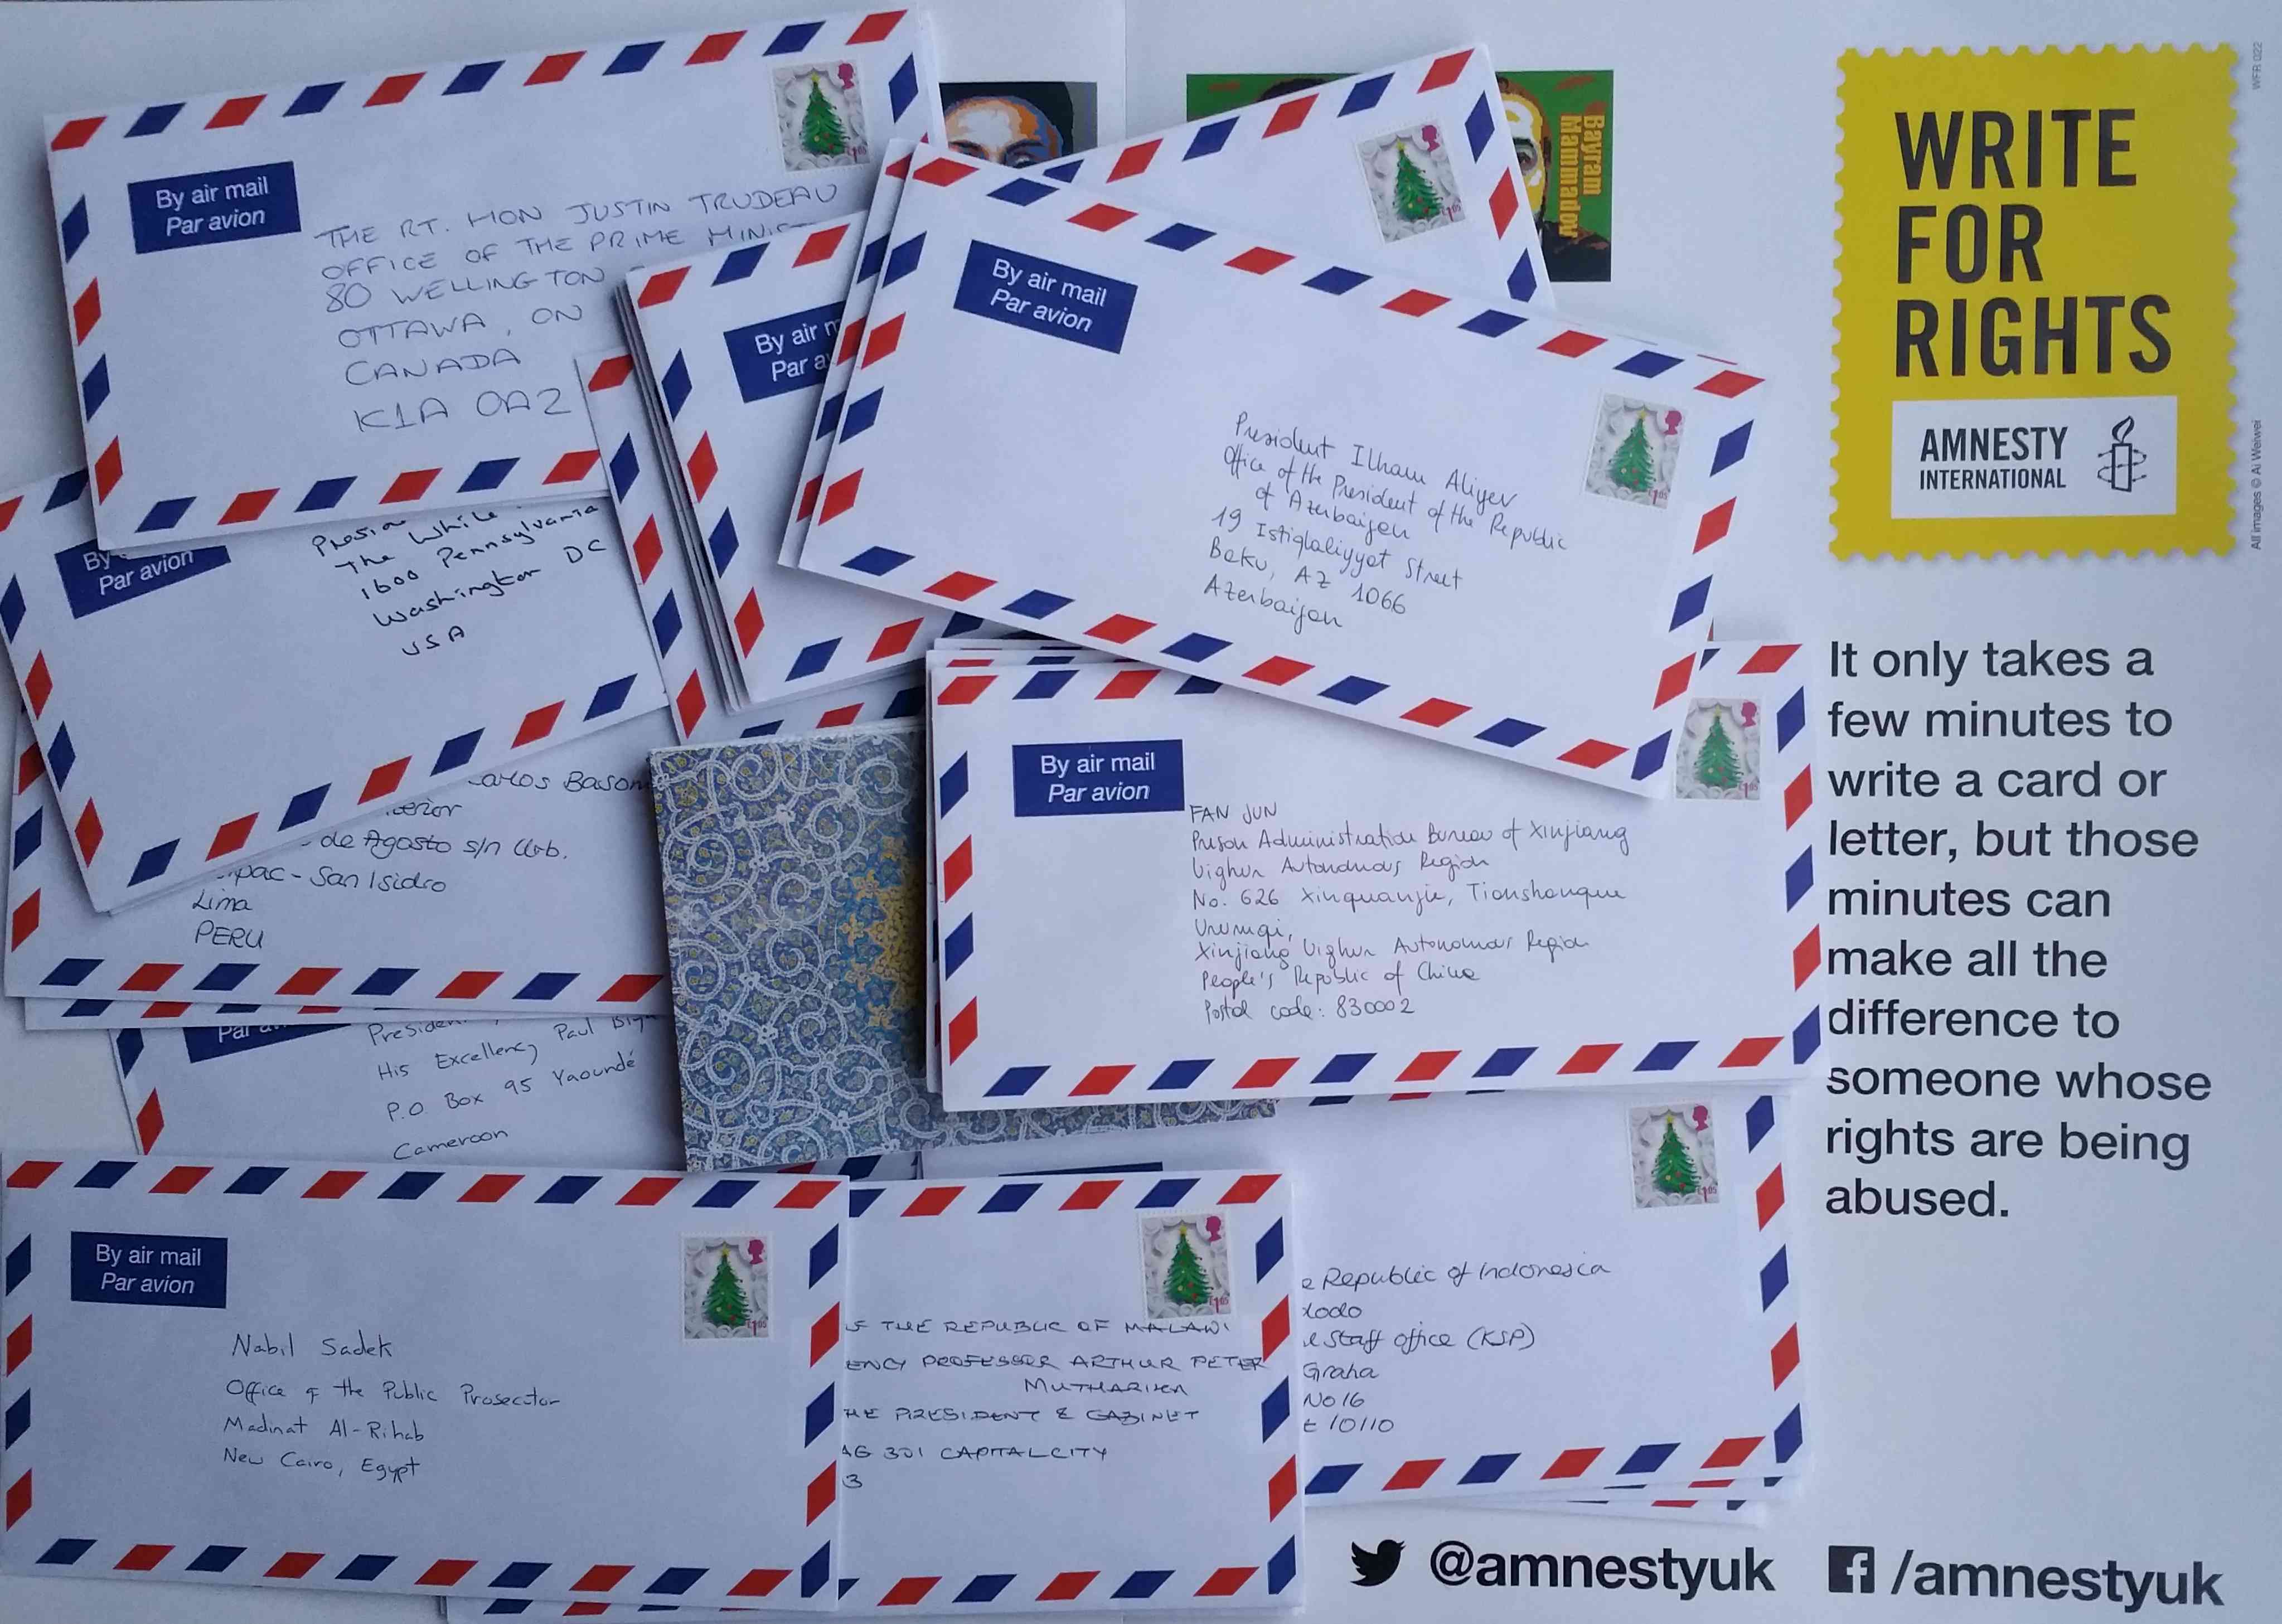 By air mail
Par avion
THE RT. HON JUSTIN TRUDEAU
OFFICE OF THE PRIME
80 WELLINGTON
OTTAWA, ON
CANADA
K1A 0A2
£1.05
Bayram
Mammadov
£1.05
WRITE
FOR
RIGHTS
AMNESTY
INTERNATIONAL
WFR 022
All images © Ai Weiwei
By air
Par
By air mail
Par avion
President Ilham Aliyev
Office of the President of the Republic
of Azerbaijan
19 Istiqlaliyyat Street
Baku, AZ 1066
Azerbaijan
£1.05
By
Par avion
The White
1600 Pennsylvania
Washington DC
USA
de Agosto s/n Urb.
San Isidro
Lima
PERU
By air mail
Par avion
FAN JUN
Prison Administration Bureau of Xinjiang
Uighur Autonomous Region
No. 626 Xinquanjie, Tianshanque
Urumqi,
Xinjiang Uighur Autonomous Region
People's Republic of China
Postal code: 830002
£1.05
It only takes a
few minutes to
write a card or
letter, but those
minutes can
make all the
difference to
someone whose
rights are being
abused.
Par
His Excellency Paul
P.O Box 95 Yaoundé
Cameroon
By air mail
Par avion
Nabil Sadek
Office of the Public Prosecutor
Madinat Al-Rihab
New Cairo, Egypt
£1.05
THE REPUBLIC OF MALAWI
PROFESSOR ARTHUR PETER
MUTHARIKA
PRESIDENT & CABINET
301 CAPITAL CITY
3
£1.05
Republic of Indonesia
Staff office (KSP)
Graha
No 16
10110
£1.05
@amnestyuk
/amnestyuk